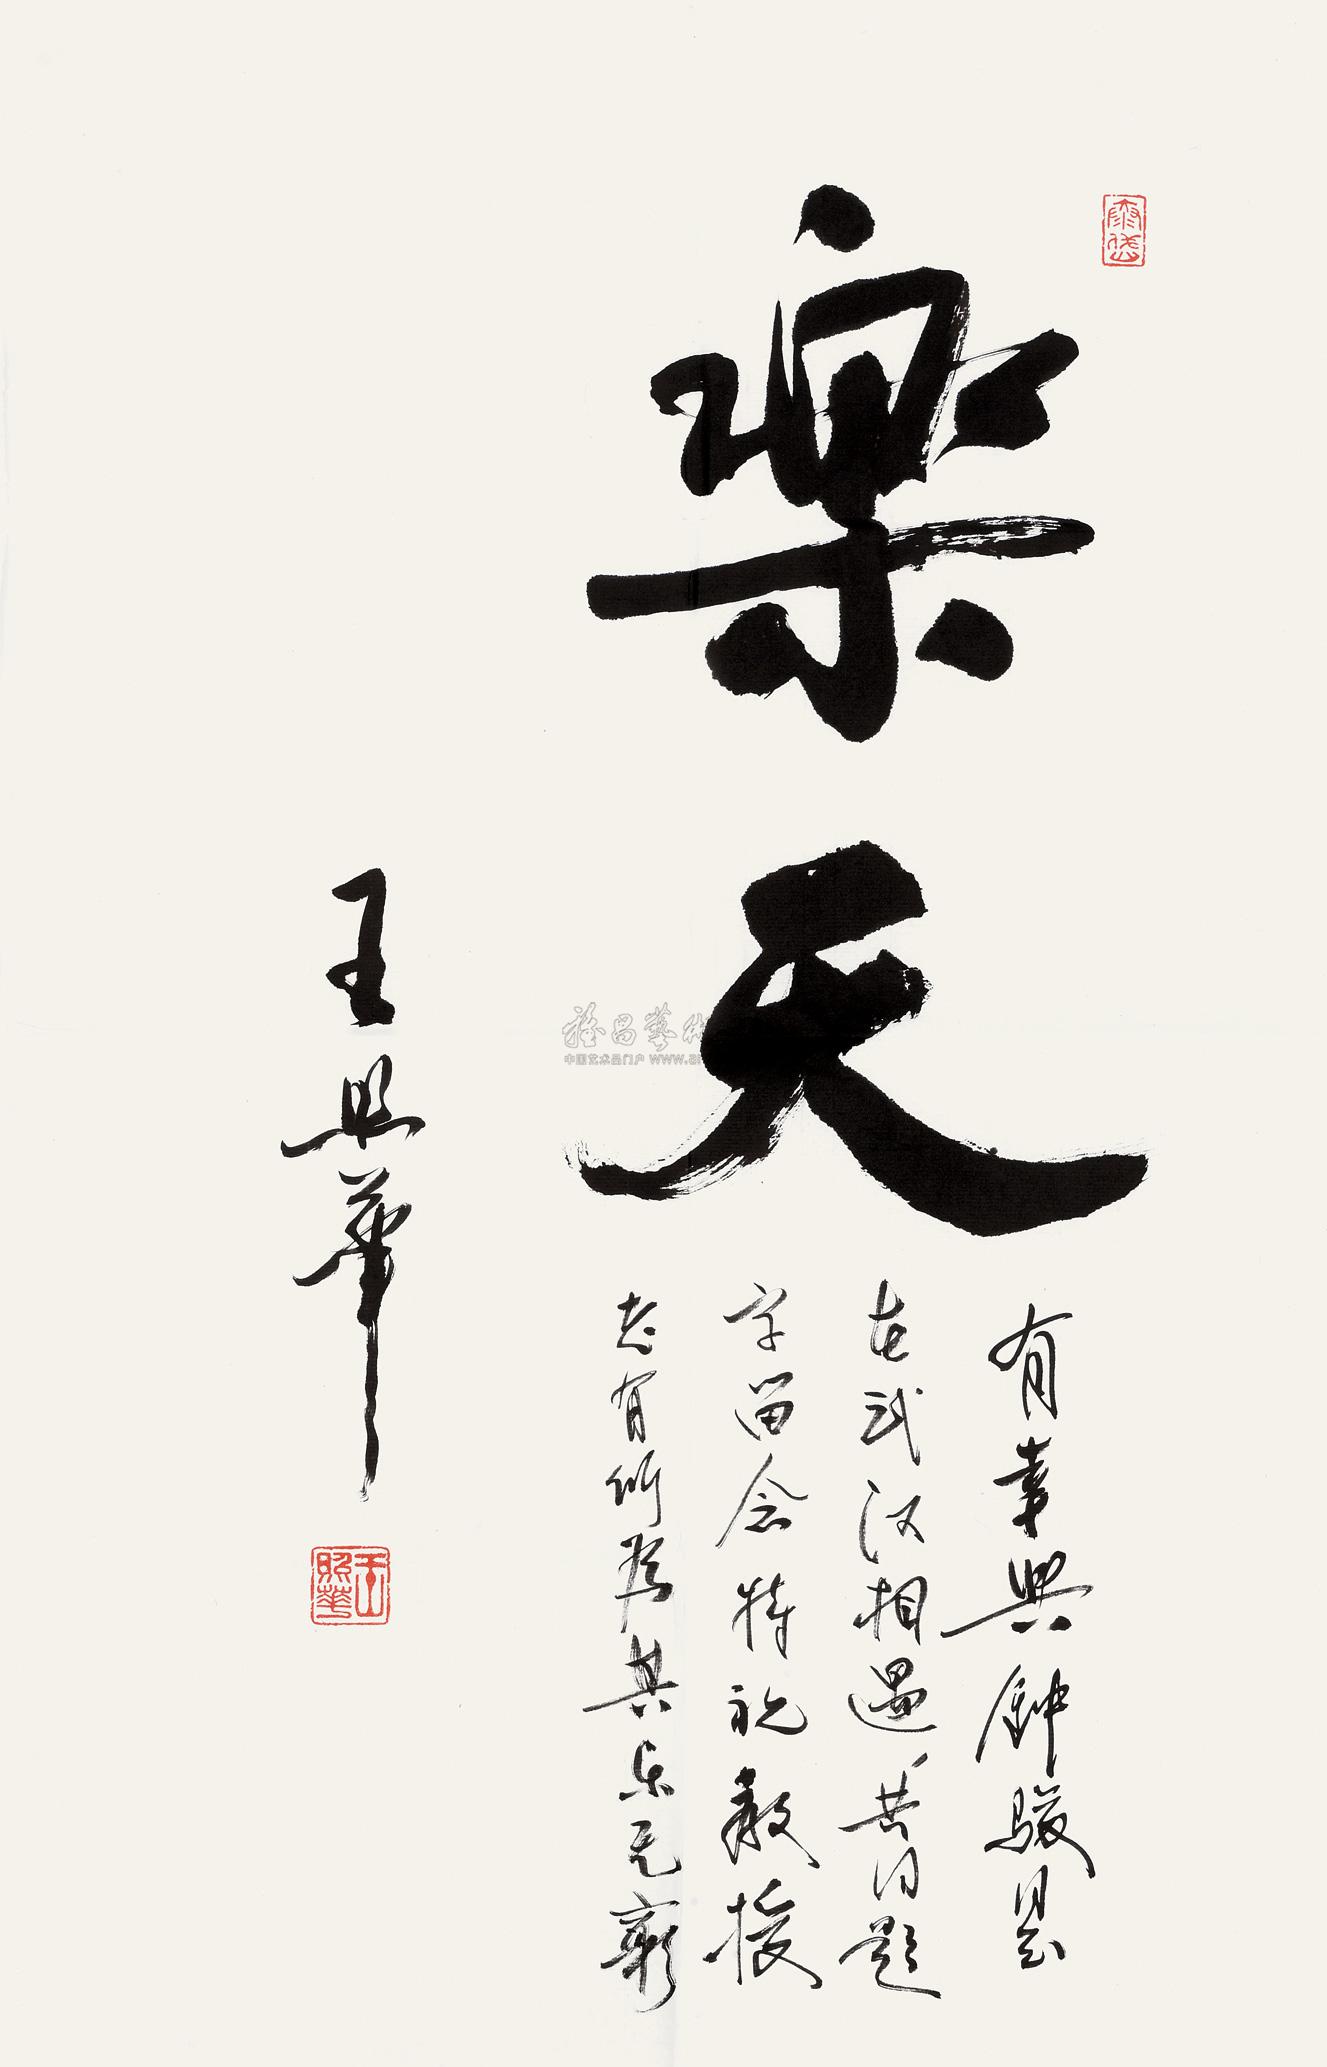 樂天
有幸與鍾駿
在武汉相遇共同題
字留念特祝教授
老有所为其乐无穷
王照華
王照華
中国艺术品门户